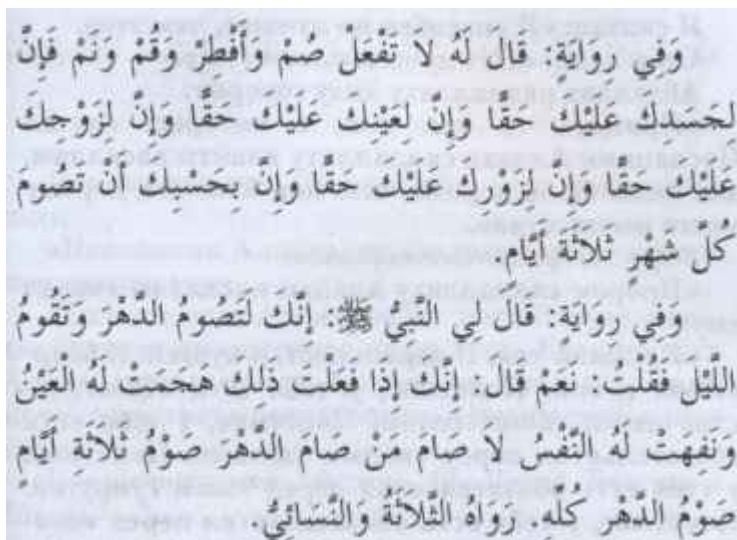 وَفِي رِوَايَةٍ: قَالَ لَهُ لَا تَفْعَلْ صُمْ وَأَفْطِرْ وَقُمْ وَنَمْ فَإِنَّ
لِجَسَدِكَ عَلَيْكَ حَقًّا وَإِنَّ لِعَيْنِكَ عَلَيْكَ حَقًّا وَإِنَّ لِزَوْجِكَ
عَلَيْكَ حَقًّا وَإِنَّ لِزَوْرِكَ عَلَيْكَ حَقًّا وَإِنَّ بِحَسْبِكَ أَنْ تَصُومَ
كُلَّ شَهْرٍ ثَلَاثَةَ أَيَّامٍ.
وَفِي رِوَايَةٍ: قَالَ لِي النَّبِيُّ ﷺ: إِنَّكَ لَتَصُومُ الدَّهْرَ وَتَقُومُ
اللَّيْلَ فَقُلْتُ: نَعَمْ قَالَ: إِنَّكَ إِذَا فَعَلْتَ ذَلِكَ هَجَمَتْ لَهُ الْعَيْنُ
وَنَفِهَتْ لَهُ النَّفْسُ لَا صَامَ مَنْ صَامَ الدَّهْرَ صَوْمُ ثَلَاثَةِ أَيَّامٍ
صَوْمُ الدَّهْرِ كُلِّهِ. رَوَاهُ الثَّلَاثَةُ وَالنَّسَائِيُّ.